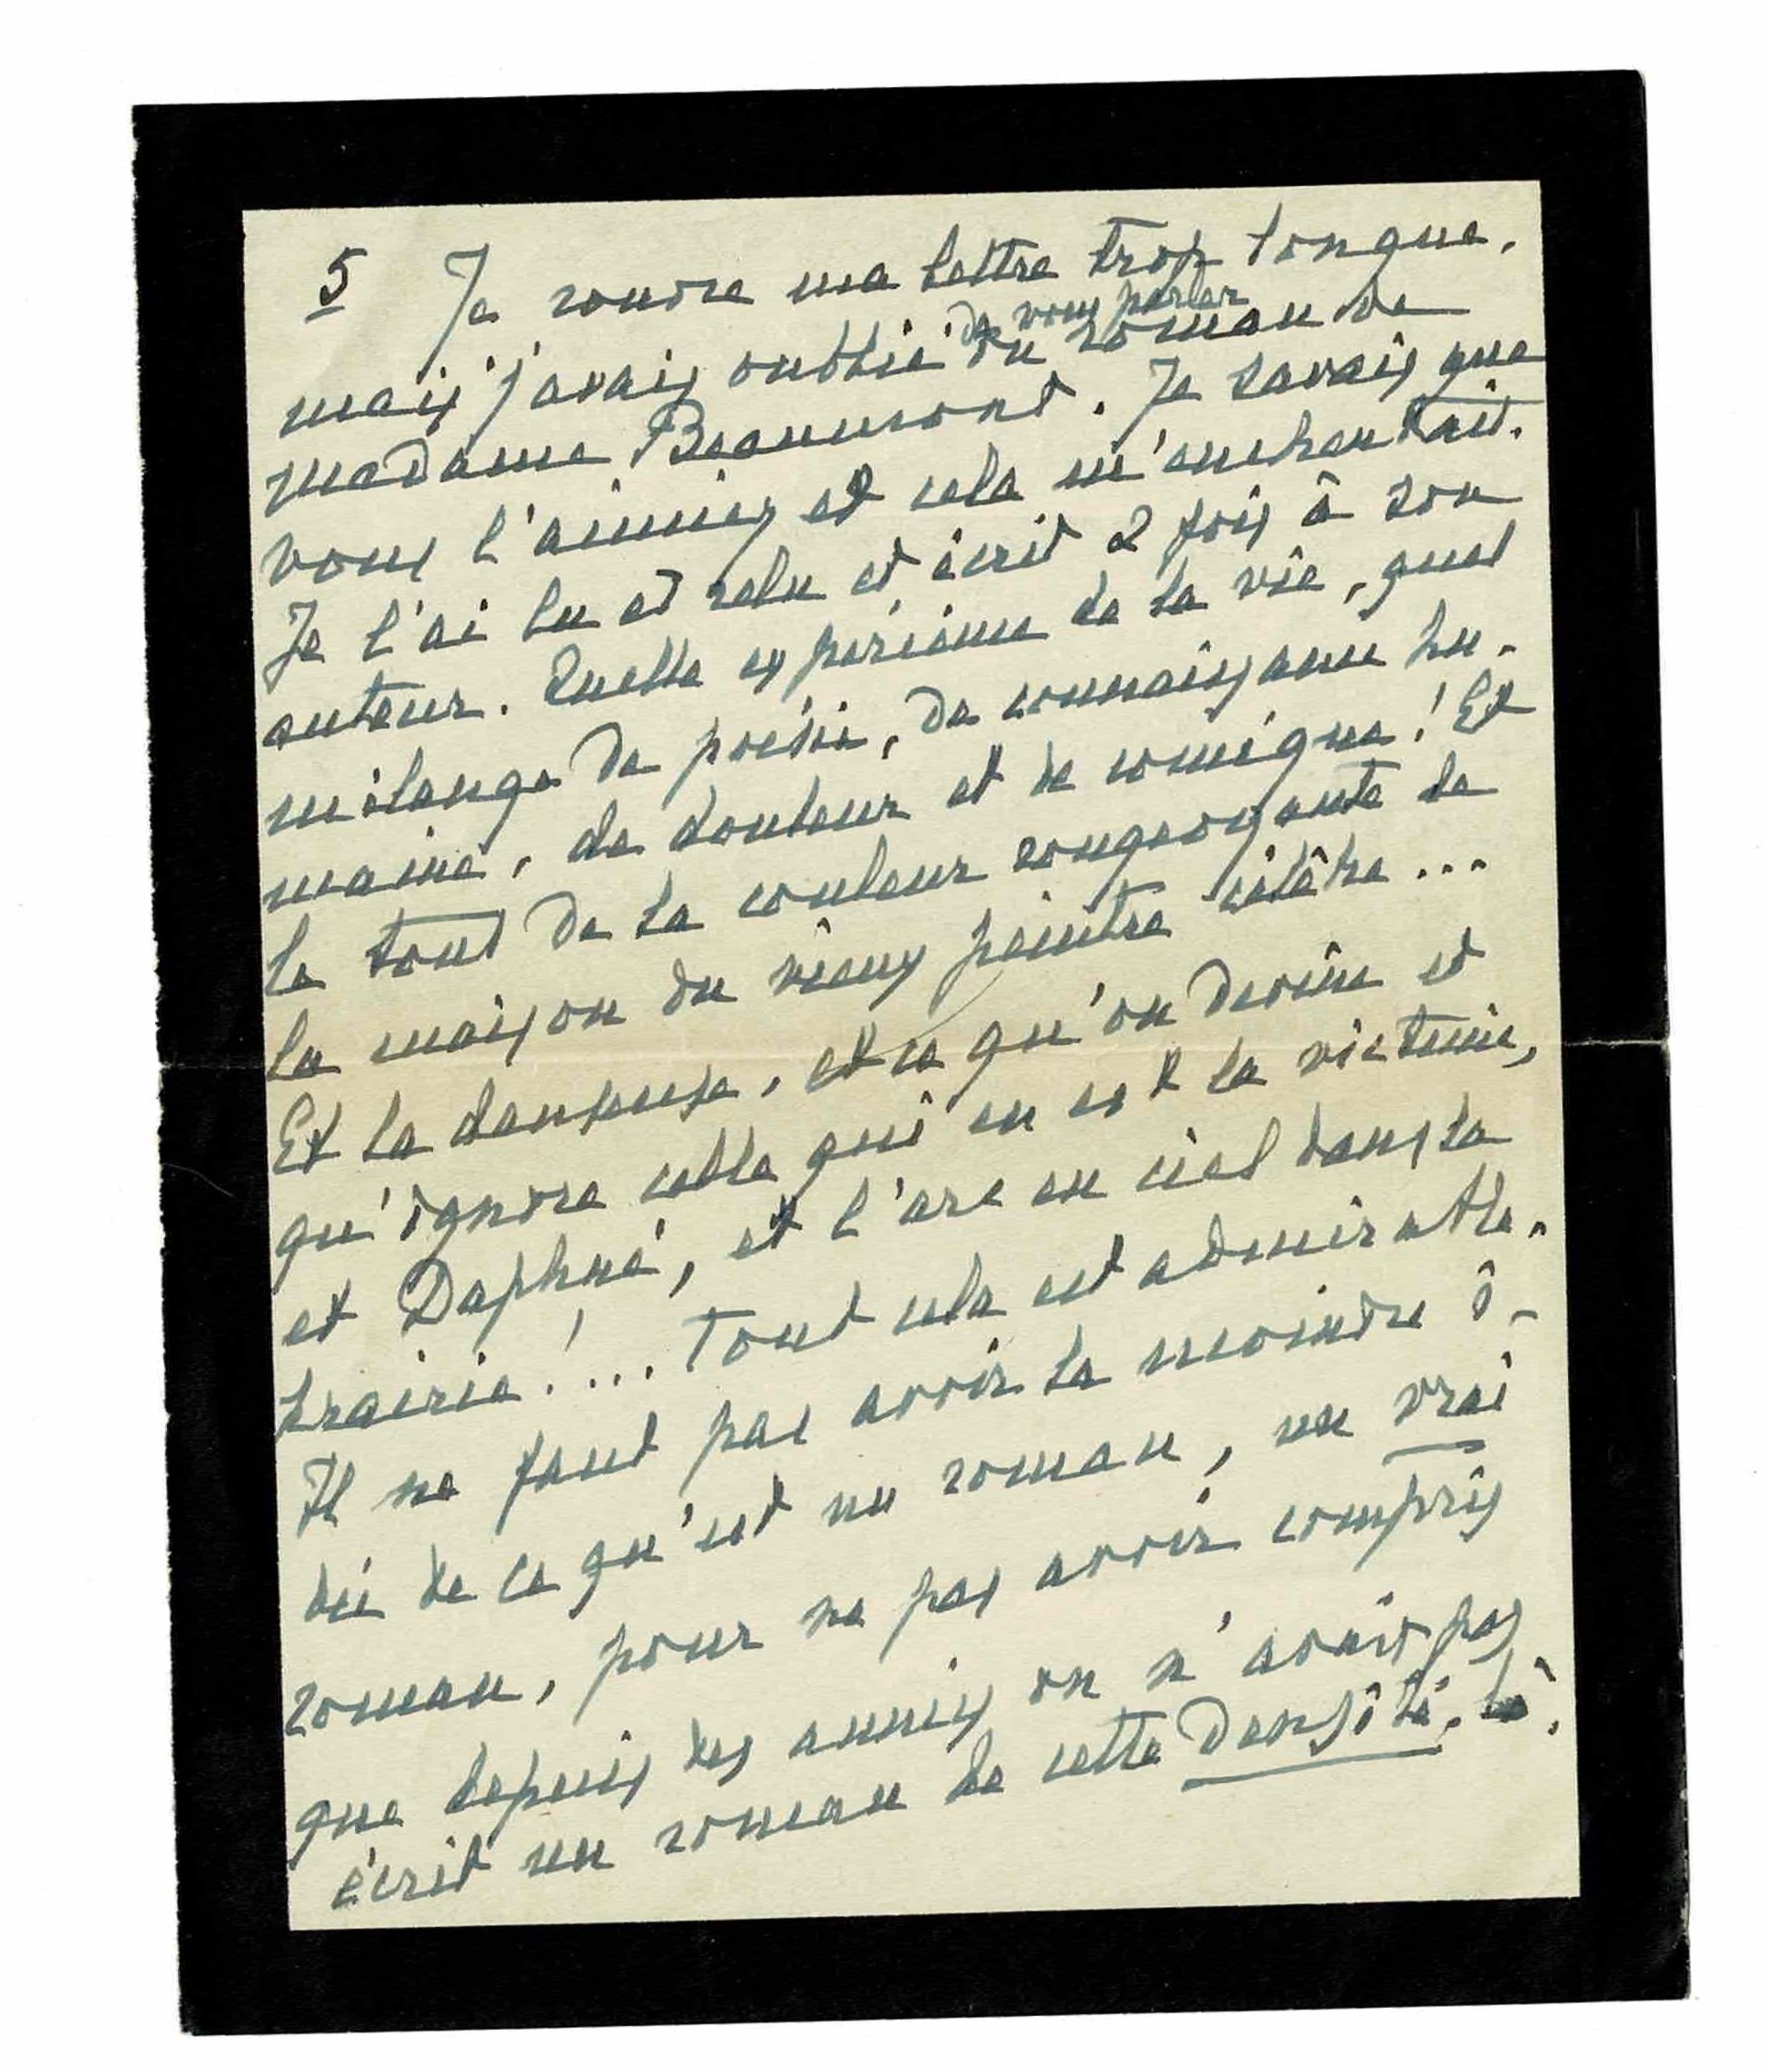 5 Je rouvre ma lettre trop longue.
de vous parler
mais j'avais oublié du roman de
madame Beaumont. Je savais que
vous l'aimiez et cela m'enchantait.
Je l'ai lu et relu et écrit 2 fois à son
auteur. Quelle expérience de la vie, quel
mélange de poésie, de connaissance hu-
maine, de douleur et de comique ! Et
le tout de la couleur rougeoyante de
la maison du vieux peintre célèbre...
Et la danseuse, et ce qu'on devine et
qu'ignore celle qui en est la victime,
et Daphné, et l'arc en ciel dans la
prairie !... Tout cela est admirable.
Il ne faut pas avoir la moindre i-
dée de ce qu'est un roman, un vrai
roman, pour ne pas avoir compris
que depuis des années on n'avait pas
écrit un roman de cette densité.